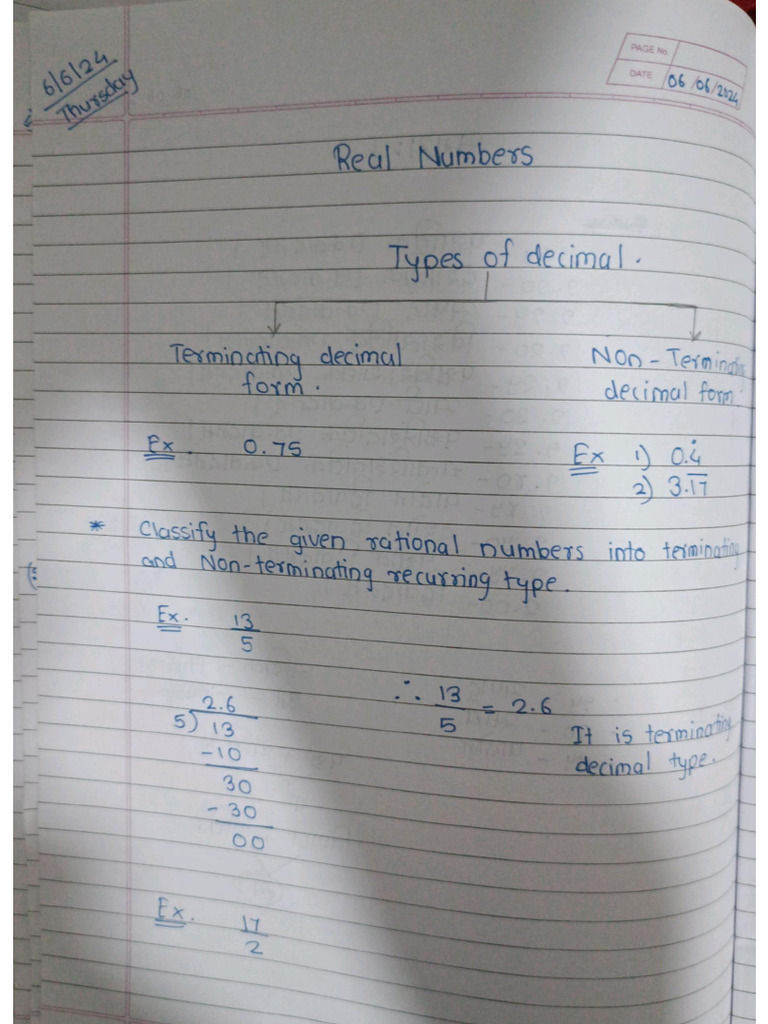 6/6/24
Thursday
PAGE No.
DATE 06/06/2024
Real Numbers
Types of decimal.
Terminating decimal form.
Non-Terminating decimal form.
Ex. 0.75
Ex 1) 0.4̇
2) 3.1̅7̅
* Classify the given rational numbers into terminating
and Non-terminating recurring type.
Ex. 13/5
2.6
5) 13
-10
30
-30
00
∴ 13/5 = 2.6
It is terminating
decimal type.
Ex. 17/2